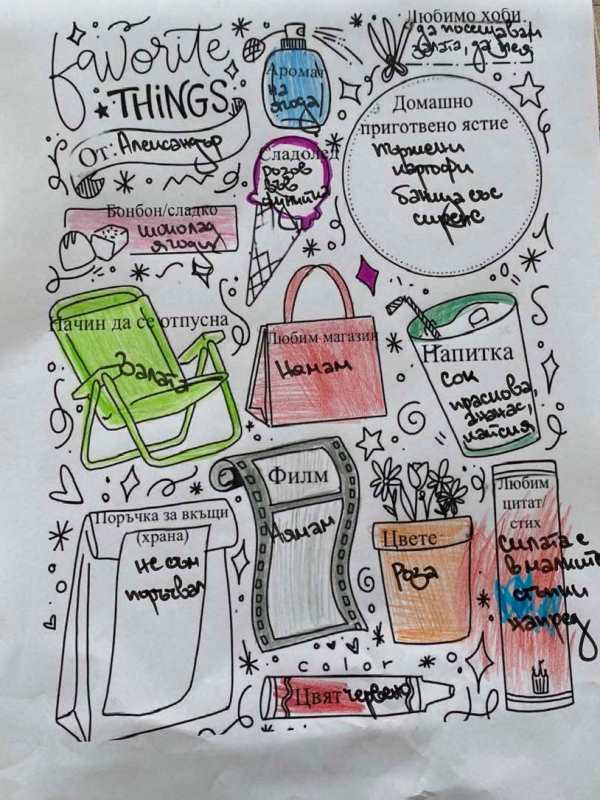 favorite
THINGS
От: Александър
Аромат
на
ягода
Любимо хоби
да посещавам
залата, да пея
Домашно
приготвено ястие
пържени
картофи
баница със
сирене
Сладолед
розов
във
фунийка
Бонбон/сладко
шоколад
ягоди
Начин да се отпусна
Залата
Любим магазин
Нямам
Напитка
сок
праскова,
ананас,
кайсия
Поръчка за вкъщи
(храна)
не съм
поръчвал
Филм
Нямам
Цвете
Роза
Любим
цитат/
стих
силата е
в малките
стъпки
напред
color
Цвят червено